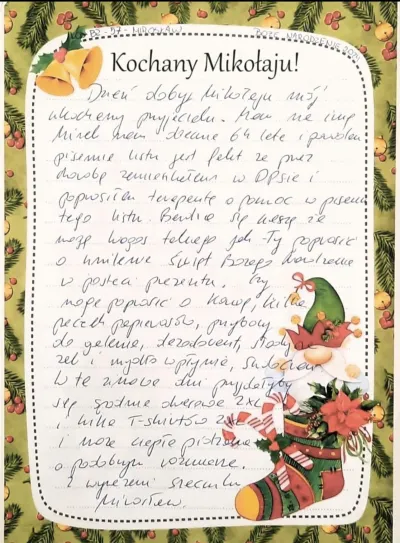 MIROSŁAW BOŻE NARODZENIE
Kochany Mikołaju!
Dzień dobry Mikołaju mój
ukochany przyjacielu. Mam na imię
Mirek mam obecnie 64 lata i powodem
pisania listu jest fakt że przez
chorobę zamieszkałem w DPSie i
poprosiłem terapeutę o pomoc w pisaniu
tego listu. Bardzo się cieszę że
mogę kogoś takiego jak Ty poprosić
o umilenie Świąt Bożego Narodzenia
w postaci prezentu. Czy
mogę poprosić o kawę, kilka
paczek papierosów, przybory
do golenia, dezodorant,
żel i mydło w płynie,
W te zimowe dni przydałyby
się spodnie dresowe 2XL
i kilka T-shirtów
i może ciepła piżama
o podobnym rozmiarze.
Z wyrazami szacunku
Mirosław.